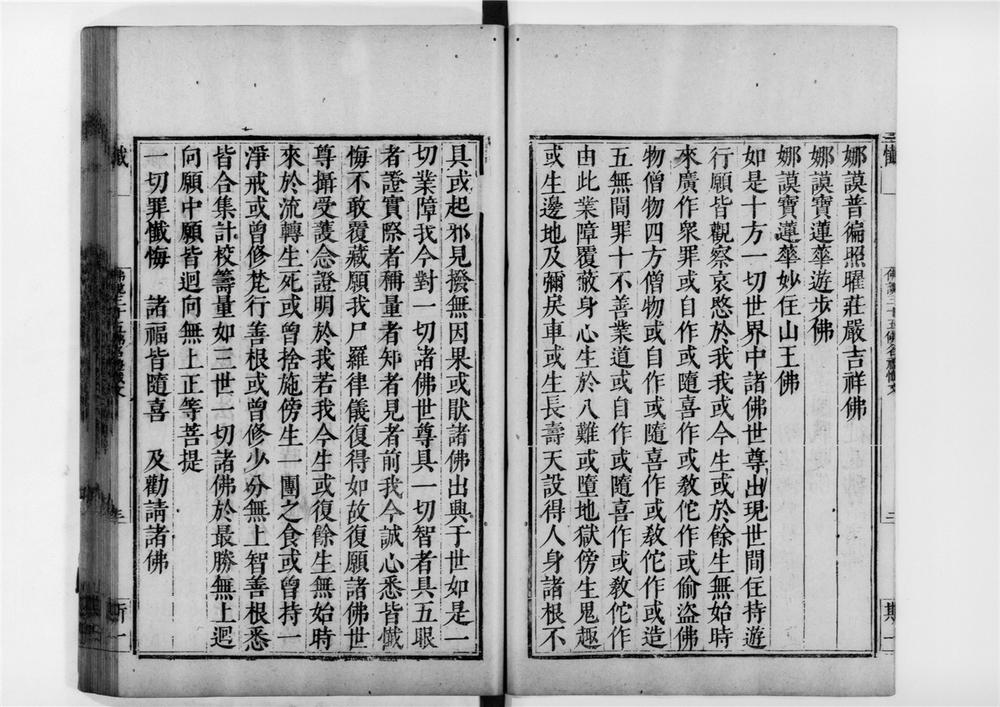 娜謨普徧照曜莊嚴吉祥佛
娜謨寶蓮華遊步佛
娜謨寶蓮華妙住山王佛
如是十方一切世界中諸佛世尊出現世間住持遊
行願皆觀察哀愍於我我或今生或於餘生無始時
來廣作衆罪或自作或隨喜作或敎佗作或偷盜佛
物僧物四方僧物或自作或隨喜作或敎佗作或造
五無間罪十不善業道或自作或隨喜作或敎佗作
由此業障覆蔽身心生於八難或墮地獄傍生鬼趣
或生邊地及彌戾車或生長壽天設得人身諸根不
具或起邪見撥無因果或猒諸佛出興于世如是一
切業障我今對一切諸佛世尊具一切智者具五眼
者證實際者稱量者知者見者前我今誠心悉皆懺
悔不敢覆藏願我尸羅律儀復得如故復願諸佛世
尊攝受護念證明於我若我今生或復餘生無始時
來於流轉生死或曾捨施傍生一團之食或曾持一
淨戒或曾修梵行善根或曾修少分無上智善根悉
皆合集計校籌量如三世一切諸佛於最勝無上迴
向願中願皆迴向無上正等菩提
一切罪懺悔　諸福皆隨喜　及勸請諸佛